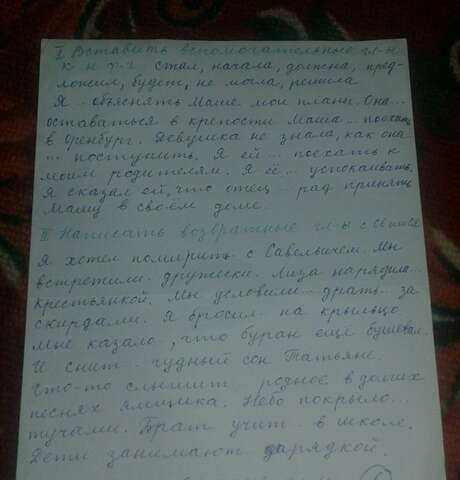 I Вставить вспомогательные гл-ы
стал, начала, должна, пред-
ложил, будет, не могла, решила
Я .. объяснять Маше мои планы. Она...
оставаться в крепости Маша... поехать
в Оренбург. Девушка не знала, как она
... поступить. Я ей ... поехать к
моим родителям. Я её ... успокаивать.
Я сказал ей, что отец ... рад принять
Машу в своём доме.
II Написать возвратные гл-ы
Я хотел помирить.. с Савельичем. Мы
встретили.. дружески. Лиза нарядила...
крестьянкой. Мы условили.. драть.. за
скирдами. Я бросил.. на крыльцо
Мне казало.., что буран ещё бушевал.
И снит.. чудный сон Татьяне.
Что-то слышит.. родное в долгих
песнях ямщика. Небо покрыло...
тучами. Брат учит.. в школе.
Дети занимают.. зарядкой.